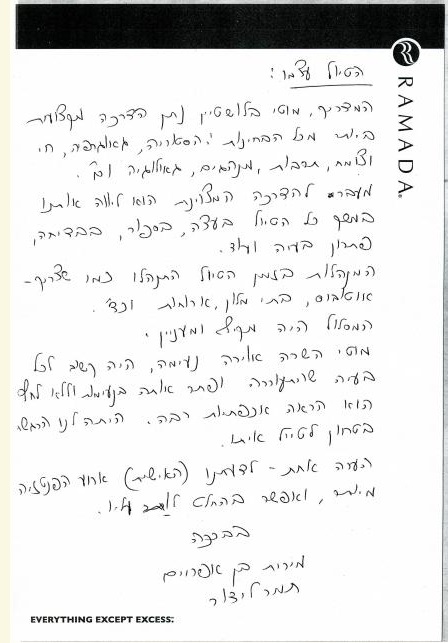 RAMADA®
הטיול עצמו:
המדריך, מוטי בלושטיין נתן הדרכה מקצועית
ביותר מכל הבחינות: הסטוריה, גאוגרפיה, חי
וצומח, תרבות, מנהגים, גאולוגיה וכ'.
מעבר להדרכה המצוינת הוא ליווה אותנו
במשך כל הטיול בעצה, בספור, בבדיחה,
פתרון בעיה ועוד.
המנהלות בזמן הטיול התנהלו כמו שצריך -
אוטובוס, בתי מלון, ארוחות וכד'.
המסלול היה מקיף ומעניין.
מוטי השרה אוירה נעימה, היה קשוב לכל
בעיה שהתעוררה ופתר אותה בנעימות וללא לחץ
הוא הראה אכפתיות רבה. היתה לנו הרגשת
בטחון לטייל איתו.
הערה אחת - לדעתנו (האישית) ארוע הפנטזיה
מיותר, ואפשר בהחלט לוותר עליו.
בברכה
מירית בן אפרויים
תמר לידור
EVERYTHING EXCEPT EXCESS.